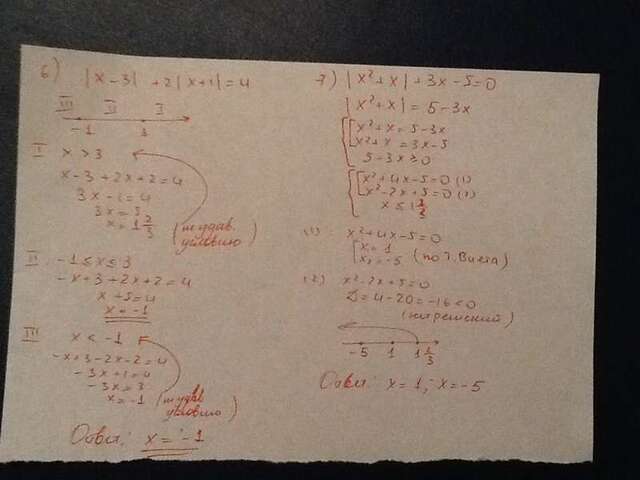 6) |x-3| +2|x+1|=4
III II I
-1 3
I x > 3
x-3+2x+2=4
3x-1=4
3x=5
x=1 2/3 (не удов. условию)
II -1≤x≤3
-x+3+2x+2=4
x+5=4
x=-1
III x < -1
-x+3-2x-2=4
-3x+1=4
-3x=3
x=-1 (не удов. условию)
Ответ: x=-1
7) |x²+x|+3x-5=0
|x²+x|=5-3x
x²+x=5-3x
x²+x=3x-5
5-3x≥0
x²+4x-5=0 (1)
x²-2x+5=0 (2)
x≤1 2/3
(1) x²+4x-5=0
x=1
x=-5 (по т. Виета)
(2) x²-2x+5=0
D=4-20=-16<0
(нет решений)
-5 1 1 2/3
Ответ: x=1; x=-5